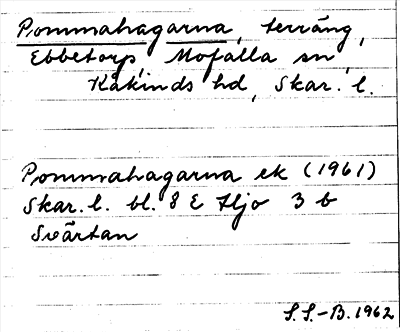 Pommahagarna, terräng,
Ebbetorp, Mofalla sn,
Kåkinds hd, Skar. l.
Pommahagarna ek (1961)
Skar. l. bl. 8 E Hjo 3 b
Svärtan
S.S.-B. 1962